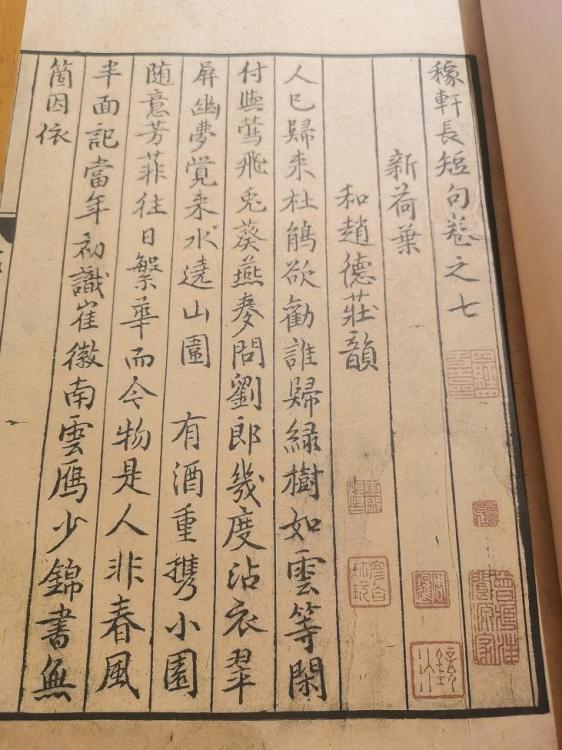 稼軒長短句卷之七
新荷葉
和趙德莊韻
人已歸来杜鵑欲勸誰歸綠樹如雲等閑
付與莺飛兎葵燕麥問劉郎幾度沾衣翠
屏幽夢覺来水遶山圍 有酒重携小園
随意芳菲往日繁華而今物是人非春風
半面記當年初識崔徽南雲鴈少錦書無
箇因依